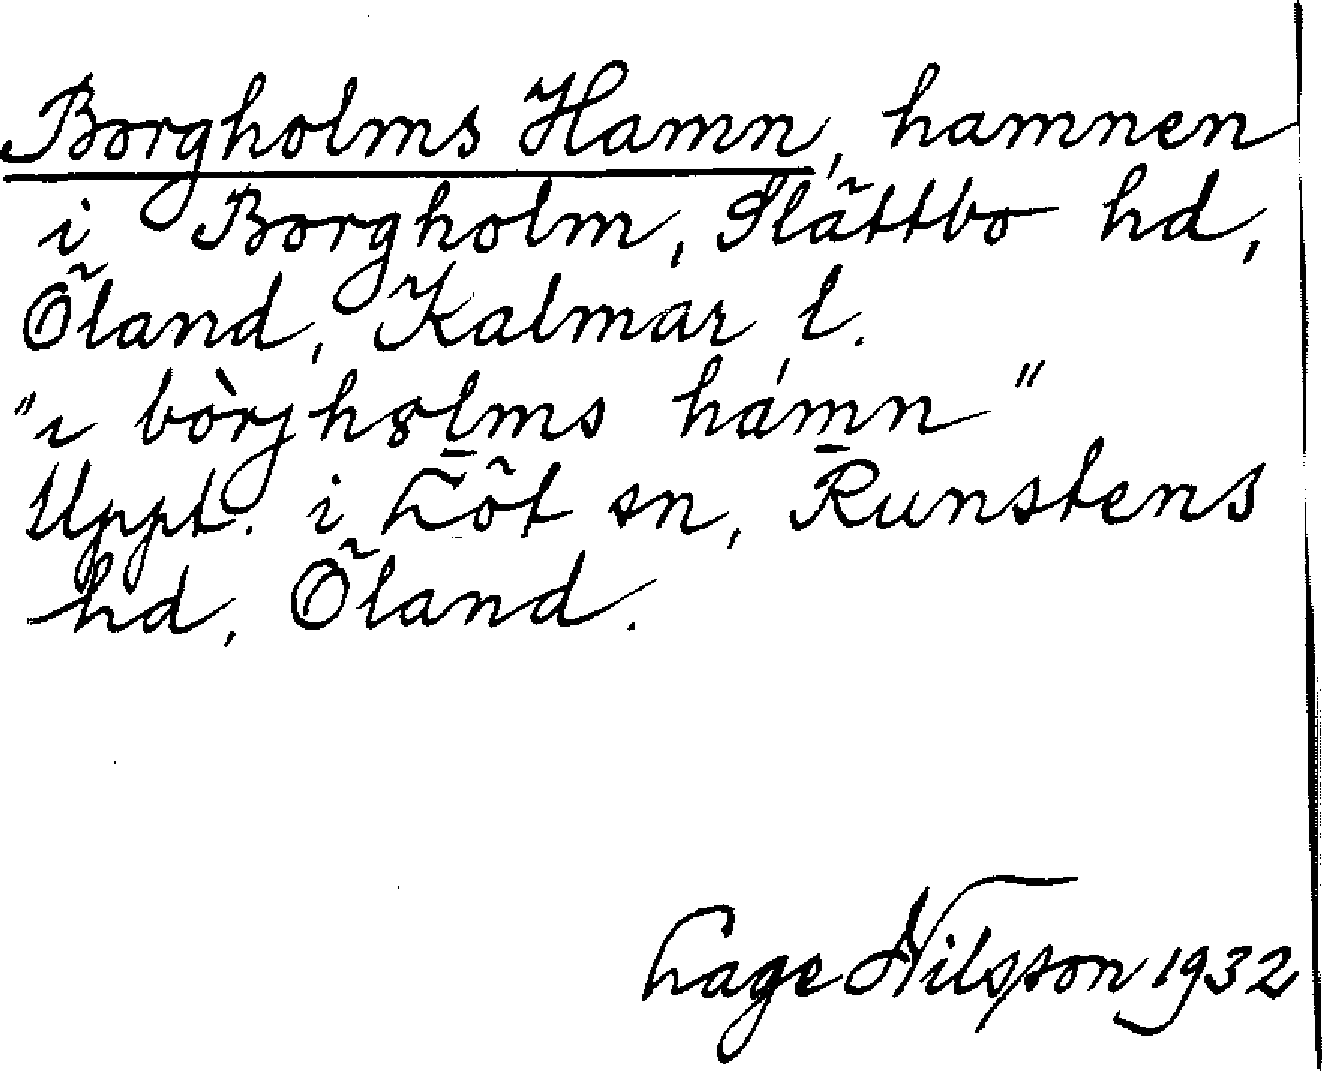 Borgholms Hamn, hamnen
i Borgholm, Slättbo hd,
Öland, Kalmar l.
"ı bòrjhɔlms hámn"
Uppt. i Löt sn, Runstens
hd, Öland.
Lage Nilsson 1932